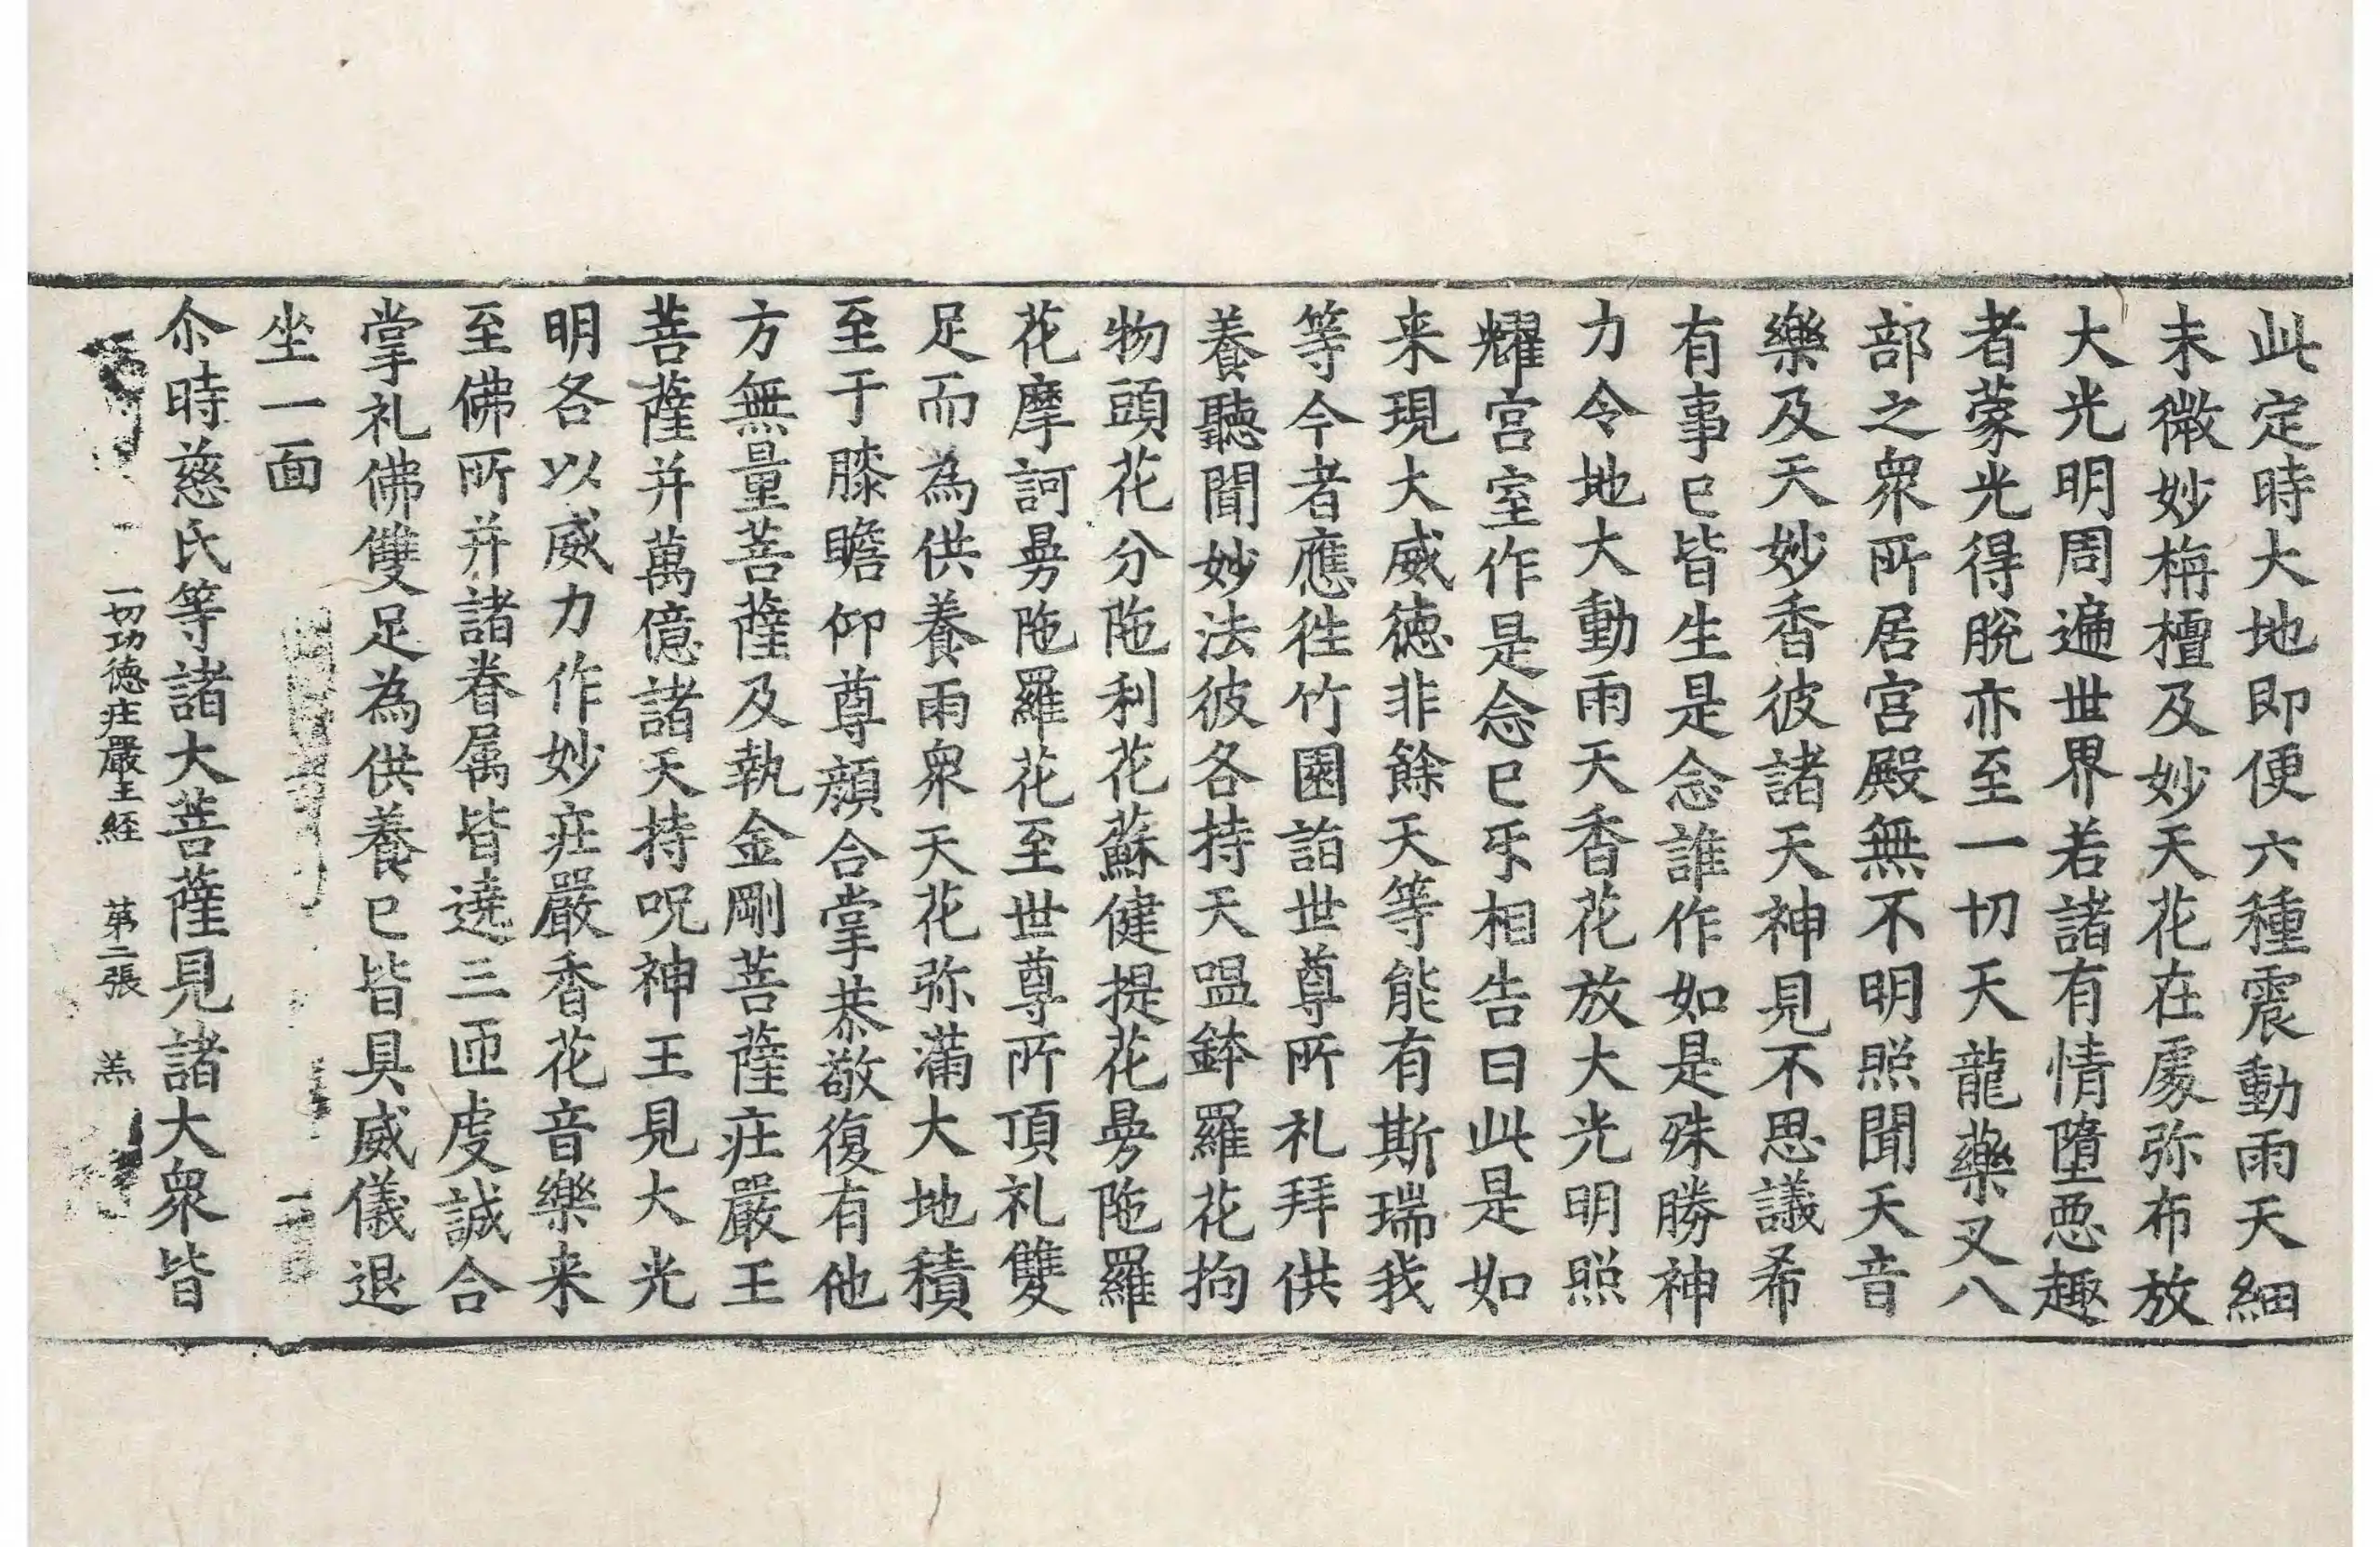 此定時大地即便六種震動雨天細
末微妙栴檀及妙天花在處弥布放
大光明周遍世界若諸有情墮惡趣
者蒙光得脫亦至一切天龍藥叉八
部之衆所居宮殿無不明照聞天音
樂及天妙香彼諸天神見不思議希
有事已皆生是念誰作如是殊勝神
力令地大動雨天香花放大光明照
耀宮室作是念已乎相告曰此是如
来現大威德非餘天等能有斯瑞我
等今者應往竹園詣世尊所礼拜供
養聽聞妙法彼各持天嗢鉢羅花拘
物頭花分陁利花蘇健提花曼陁羅
花摩訶曼陁羅花至世尊所頂礼雙
足而為供養雨衆天花弥滿大地積
至于膝瞻仰尊顔合掌恭敬復有他
方無量菩薩及執金剛菩薩莊嚴王
菩薩并萬億諸天持呪神王見大光
明各以威力作妙莊嚴香花音樂来
至佛所并諸眷属皆遶三匝虔誠合
掌礼佛雙足為供養已皆具威儀退
坐一面
尒時慈氏等諸大菩薩見諸大衆皆
一切功德莊嚴王経 第二張 羔